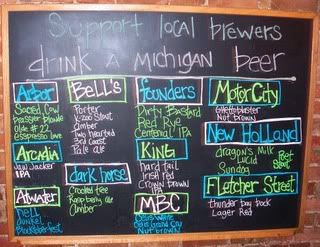 Support local brewers
drink a Michigan beer
Arbor
Sacred Cow
brasser blowde
Olde #22
espresso love
Arcadia
Jaw Jacker
IPA
Atwater
hell
dunkel
Blocktoberfest
Bell's
Porter
K-zoo Stout
amber
Two hearted
3rd Coast
Pale ale
dark horse
Crooked tree
Raspberry ale
amber
founders
Dirty Bastard
Red Rye
Centenial IPA
King
hard tail
Irish red
Crown brown
IPA
MBC
Celis White
Celis Grand Cru
Nut brown
Motor City
Ghettoblaster
Nut brown
New Holland
dragon's Milk
Lucid
Sundog
Poet
Stout
Fletcher Street
thunder bay bock
Lager Red